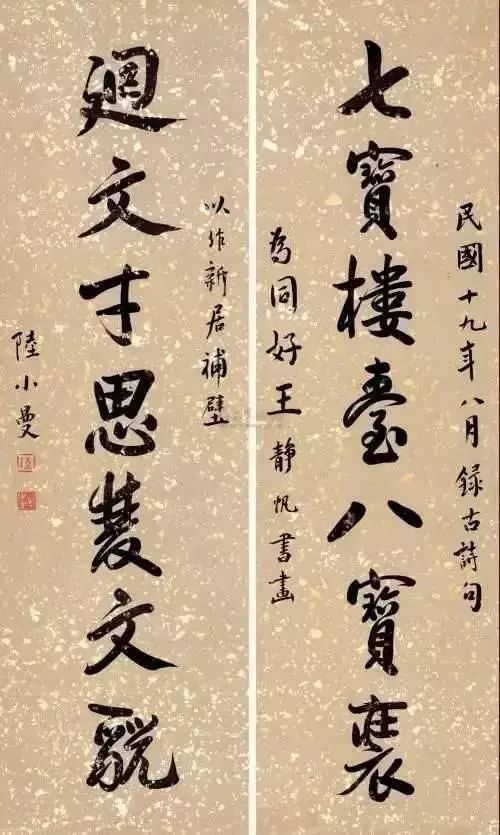 民國十九年八月錄古詩句
七寶樓臺八寶裝
為同好王靜帆書畫
以作新居補壁
廻文才思文
陸小曼